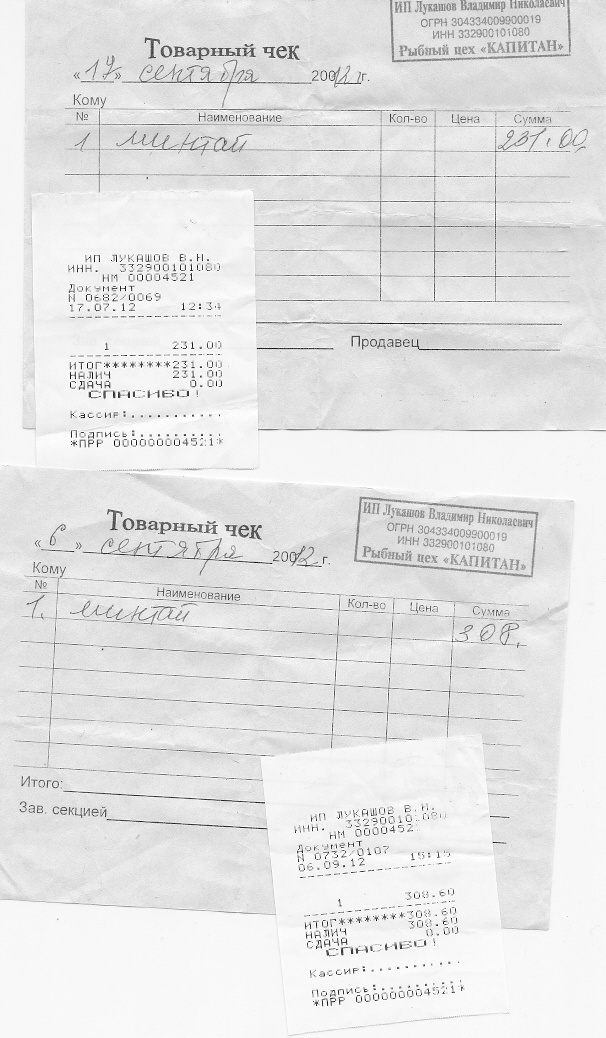 ИП Лукашов Владимир Николаевич
ОГРН 304334009900019
ИНН 332900101080
Рыбный цех «КАПИТАН»
Товарный чек
«17» сентября 20012 г.
Кому
№ Наименование Кол-во Цена Сумма
1 минтай 231.00
ИП ЛУКАШОВ В.Н.
ИНН. 332900101080
НМ 00004521
Документ
N 0682/0069
17.07.12 12:34
1 231.00
ИТОГ********231.00
НАЛИЧ 231.00
СДАЧА 0.00
СПАСИБО!
Кассир:...........
Подпись:..........
*ПРР 000000004521*
Продавец
ИП Лукашов Владимир Николаевич
ОГРН 304334009900019
ИНН 332900101080
Рыбный цех «КАПИТАН»
Товарный чек
«6» сентября 20012 г.
Кому
№ Наименование Кол-во Цена Сумма
1. минтай 308.
Итого:
Зав. секцией
ИП ЛУКАШОВ В.Н.
ИНН. 332900101080
НМ 0000452
Документ
N 0732/0107
06.09.12 15:15
1 308.60
ИТОГ********308.60
НАЛИЧ 308.60
СДАЧА 0.00
СПАСИБО!
Кассир:...........
Подпись:..........
*ПРР 000000004521*